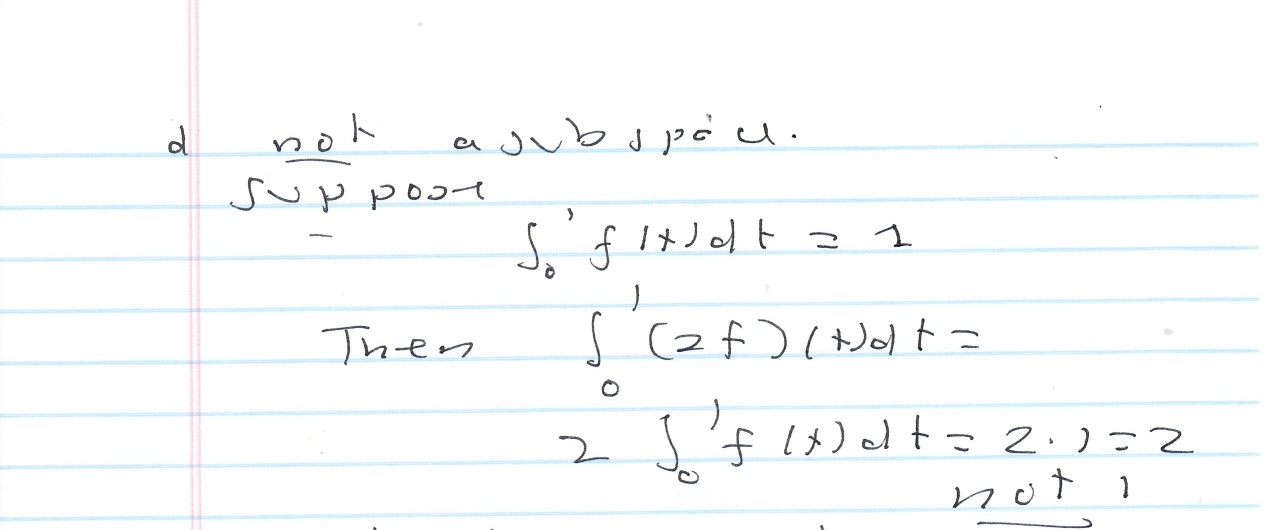 d not a subspace.
Suppose
∫₀¹ f(t)dt = 1
Then ∫₀¹ (2f)(t)dt =
2 ∫₀¹ f(t)dt = 2·1 = 2
not 1